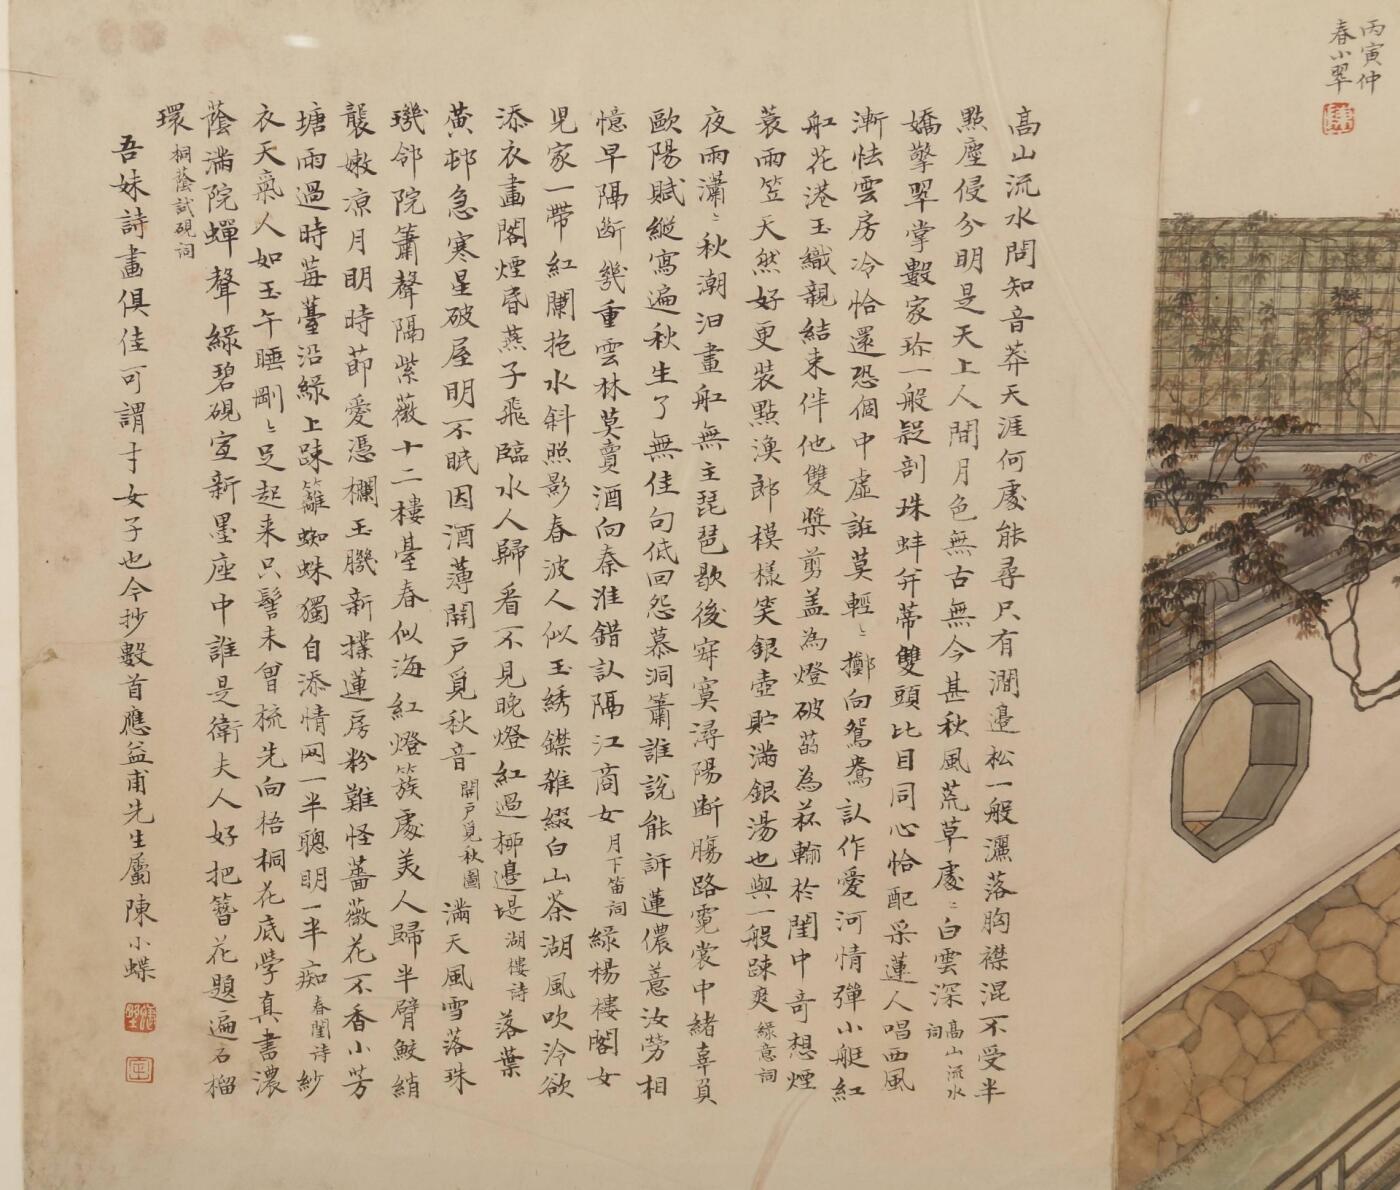 丙寅仲
春小翠
高山流水問知音莽天涯何處能尋只有澗邊松一般灑落胸襟混不受半
點塵侵分明是天上人間月色無古無今甚秋風荒草處〻白雲深高山流水詞
嬌擎翠掌數家珍一般疑剖珠蚌并蒂雙頭比目同心恰配采蓮人唱西風
漸怯雲房冷恰還恐個中虛誑莫輕〻擲向鴛鴦認作愛河情彈小艇紅
舡花港玉纖親結束伴他雙槳剪盖為燈破菂為菻輸於閨中奇想煙
蓑雨笠天然好更裝點漁郎模樣笑銀壺貯滿銀湯也與一般踈爽綠意詞
夜雨瀟〻秋潮汩畫舡無主琵琶歇後寂寞潯陽斷腸路霓裳中緒辜負
歐陽賦縱寫遍秋生了無佳句低回怨慕洞簫誰說能訴蓮儂薏汝勞相
憶早隔斷幾重雲林莫賣酒向秦淮錯認隔江商女月下笛詞綠楊樓閣女
児家一帶紅闌抱水斜照影春波人似玉綉鐷雜綴白山茶湖風吹冷欲
添衣畫閣煙昏燕子飛臨水人歸看不見晚燈紅過桺邊堤湖樓詩落葉
黃邨急寒星破屋明不眠因酒薄開戶覓秋音開戶覓秋圖滿天風雪落珠
璣邻院簫聲隔紫薇十二樓臺春似海紅燈簇處美人歸半臂鮫綃
襲嫩涼月明時莭愛憑欄玉臗新撲蓮房粉難怪薔薇花不香小芳
塘雨過時莓薹沿綠上踈籬蜘蛛獨自添情网一半聰明一半痴春閨詩紗
衣天氣人如玉午睡剛〻足起来只髻未曾梳先向梧桐花底學真書濃
蔭滿院蟬聲綠碧硯宜新墨座中誰是衛夫人好把簪花題遍石榴
環桐蔭試硯詞
吾妹詩畫俱佳可謂才女子也今抄數首應益甫先生屬陳小蝶